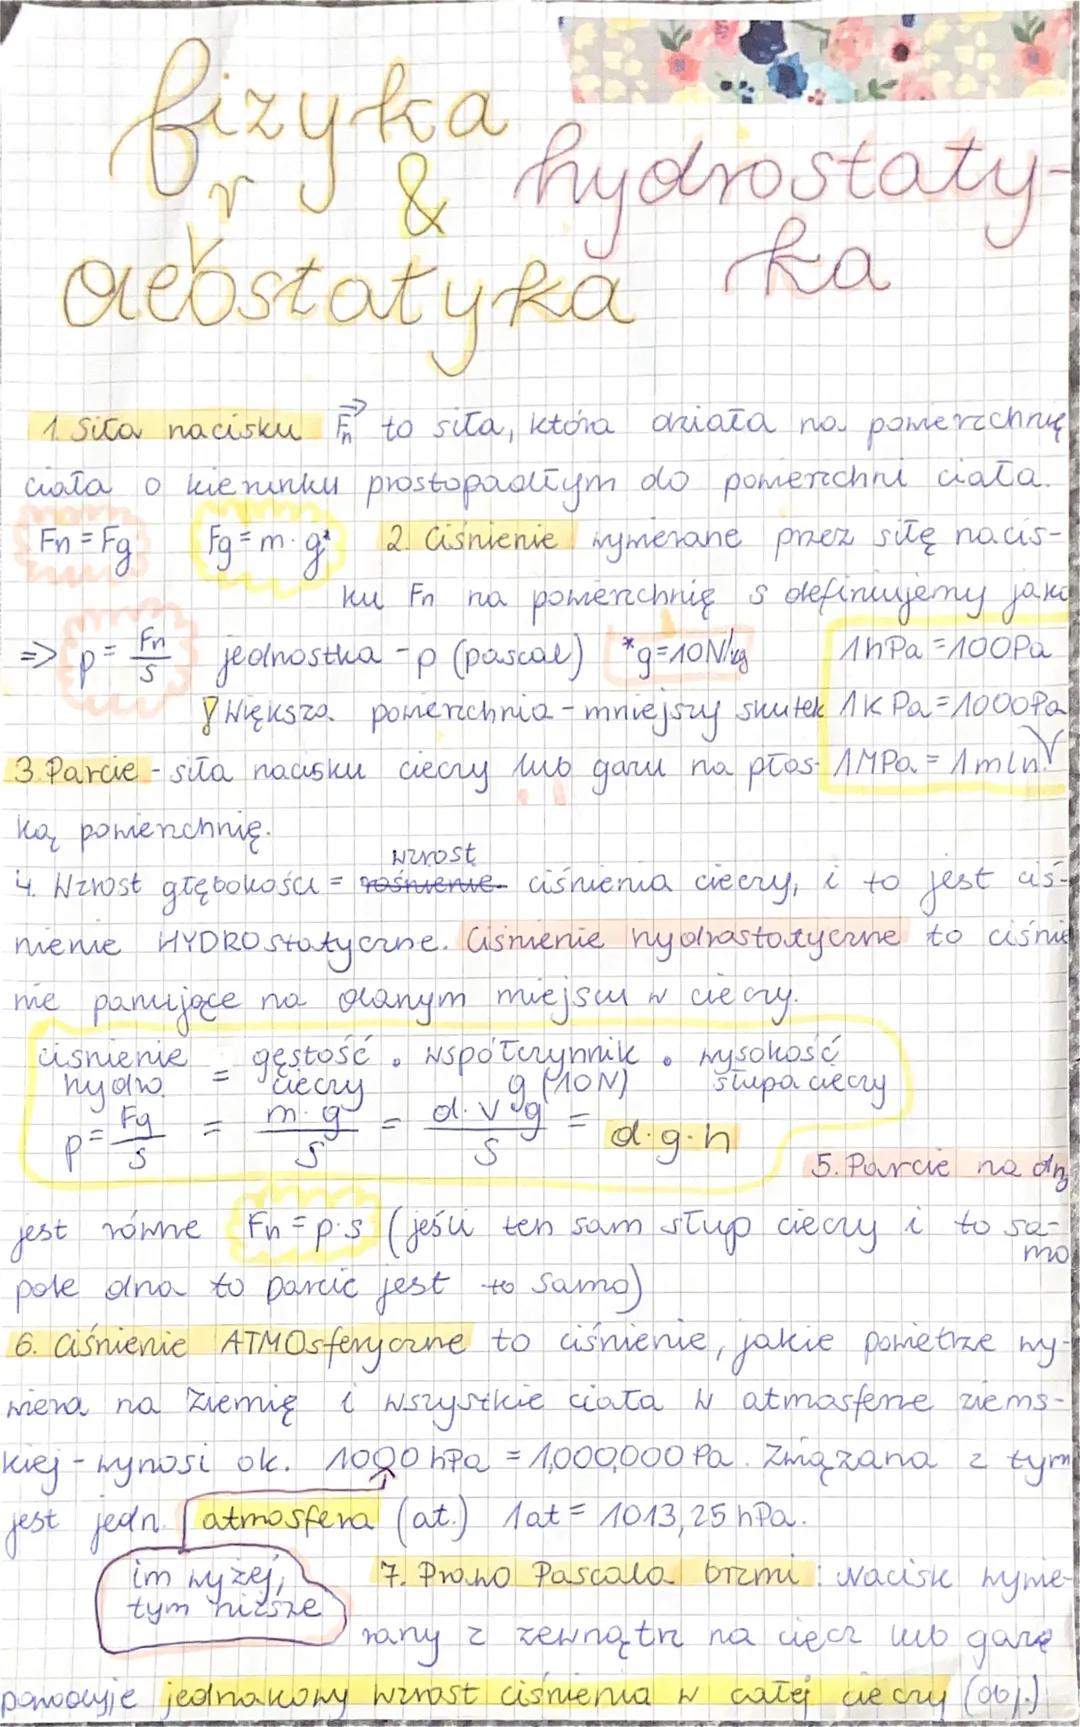 fizyka
&
hydrostaty-
ka
aerostatyka
1. Siła nacisku Fn to siła, która działa na powierzchnię
ciała o kierunku prostopadłym do powierzchni ciała.
Fn = Fg Fg = m · g* 2. Ciśnienie wywierane przez siłę nacis-
ku Fn na powierzchnię s definiujemy jako
=> p = Fn/S jednostka - p (pascal) *g=10N/kg 1hPa = 100Pa
! Większa powierzchnia - mniejszy skutek 1KPa = 1000Pa
3. Parcie - siła nacisku cieczy lub gazu na płas- 1MPa = 1mln
ką powierzchnię.
wzrost
4. Wzrost głębokości = rośnienie ciśnienia cieczy, i to jest ciś-
nienie HYDROstatyczne. Ciśnienie hydrostatyczne to ciśnie
nie panujące na danym miejscu w cieczy.
ciśnienie = gęstość · współczynnik · wysokość
hydro. cieczy g (10N) słupa cieczy
p = Fg/S = m·g/S = d·V·g/S = d·g·h
5. Parcie na dno
jest równe Fn = p·s (jeśli ten sam słup cieczy i to sa-
mo
pole dna to parcie jest to samo)
6. Ciśnienie ATMOsferyczne to ciśnienie, jakie powietrze wy-
wiera na Ziemię i wszystkie ciała w atmosferze ziems-
kiej - wynosi ok. 1000 hPa = 1,000,000 Pa. Związana z tym
jest jedn. atmosfera (at.) 1at = 1013,25 hPa.
im wyżej,
tym niższe
7. Prawo Pascala brzmi: Nacisk wywie-
rany z zewnątrz na ciecz lub gaz
powoduje jednakowy wzrost ciśnienia w całej cieczy (obj.)